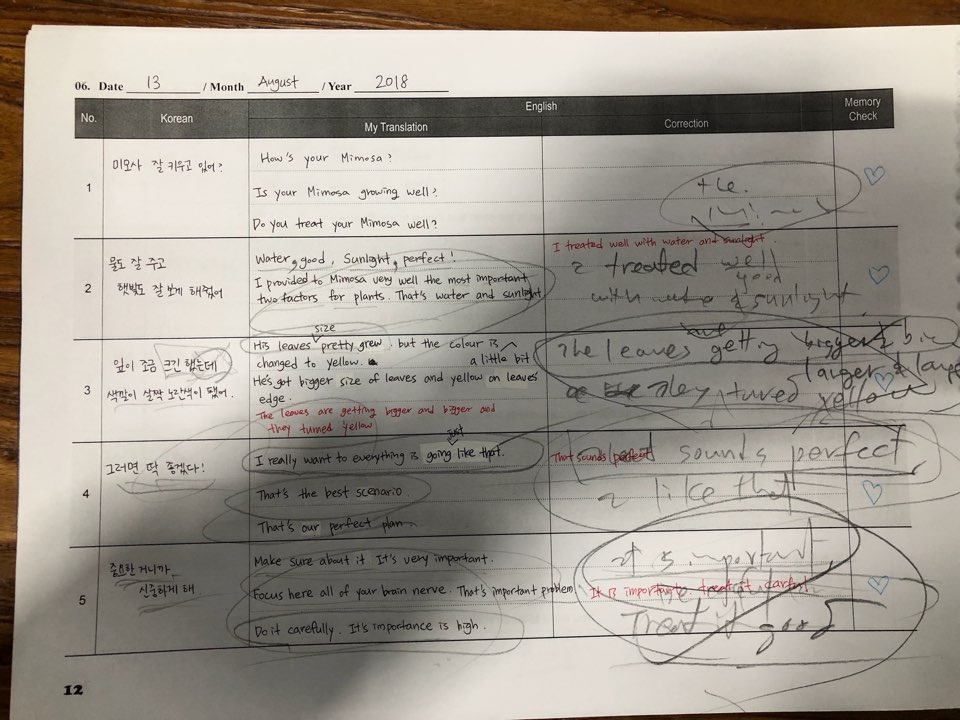 06. Date 13 / Month August / Year 2018
No.
Korean
English
My Translation
Correction
Memory Check
1
미모사 잘 키우고 있어?
How's your Mimosa?
Is your Mimosa growing well?
Do you treat your Mimosa well?
2
물도 잘 주고
햇빛도 잘 보게 해줬어
Water, good, Sunlight, perfect!
I provided to Mimosa very well the most important
two factors for plants. That's water and sunlight
I treated well with water and sunlight.
I treated well
good
with & sunlight
3
잎이 조금 크긴 했는데
색깔이 살짝 노란색이 됐어.
size
His leaves pretty grew. but the colour is
changed to yellow. a little bit
He's got bigger size of leaves and yellow on leaves
edge.
The leaves are getting bigger and bigger and
they turned yellow
The leaves getting bigger &
larger &
They tured yellow
4
그러면 딱 좋겠다!
just
I really want to everything is going like that.
That's the best scenario.
That's our perfect plan
That sounds perfect
sounds perfect
I like that
5
중요한 거니까
신중하게 해
Make sure about it It's very important.
Focus here all of your brain nerve. That's important problem
Do it carefully. It's importance is high.
It is important. treat it
It is important
Treat it good
12